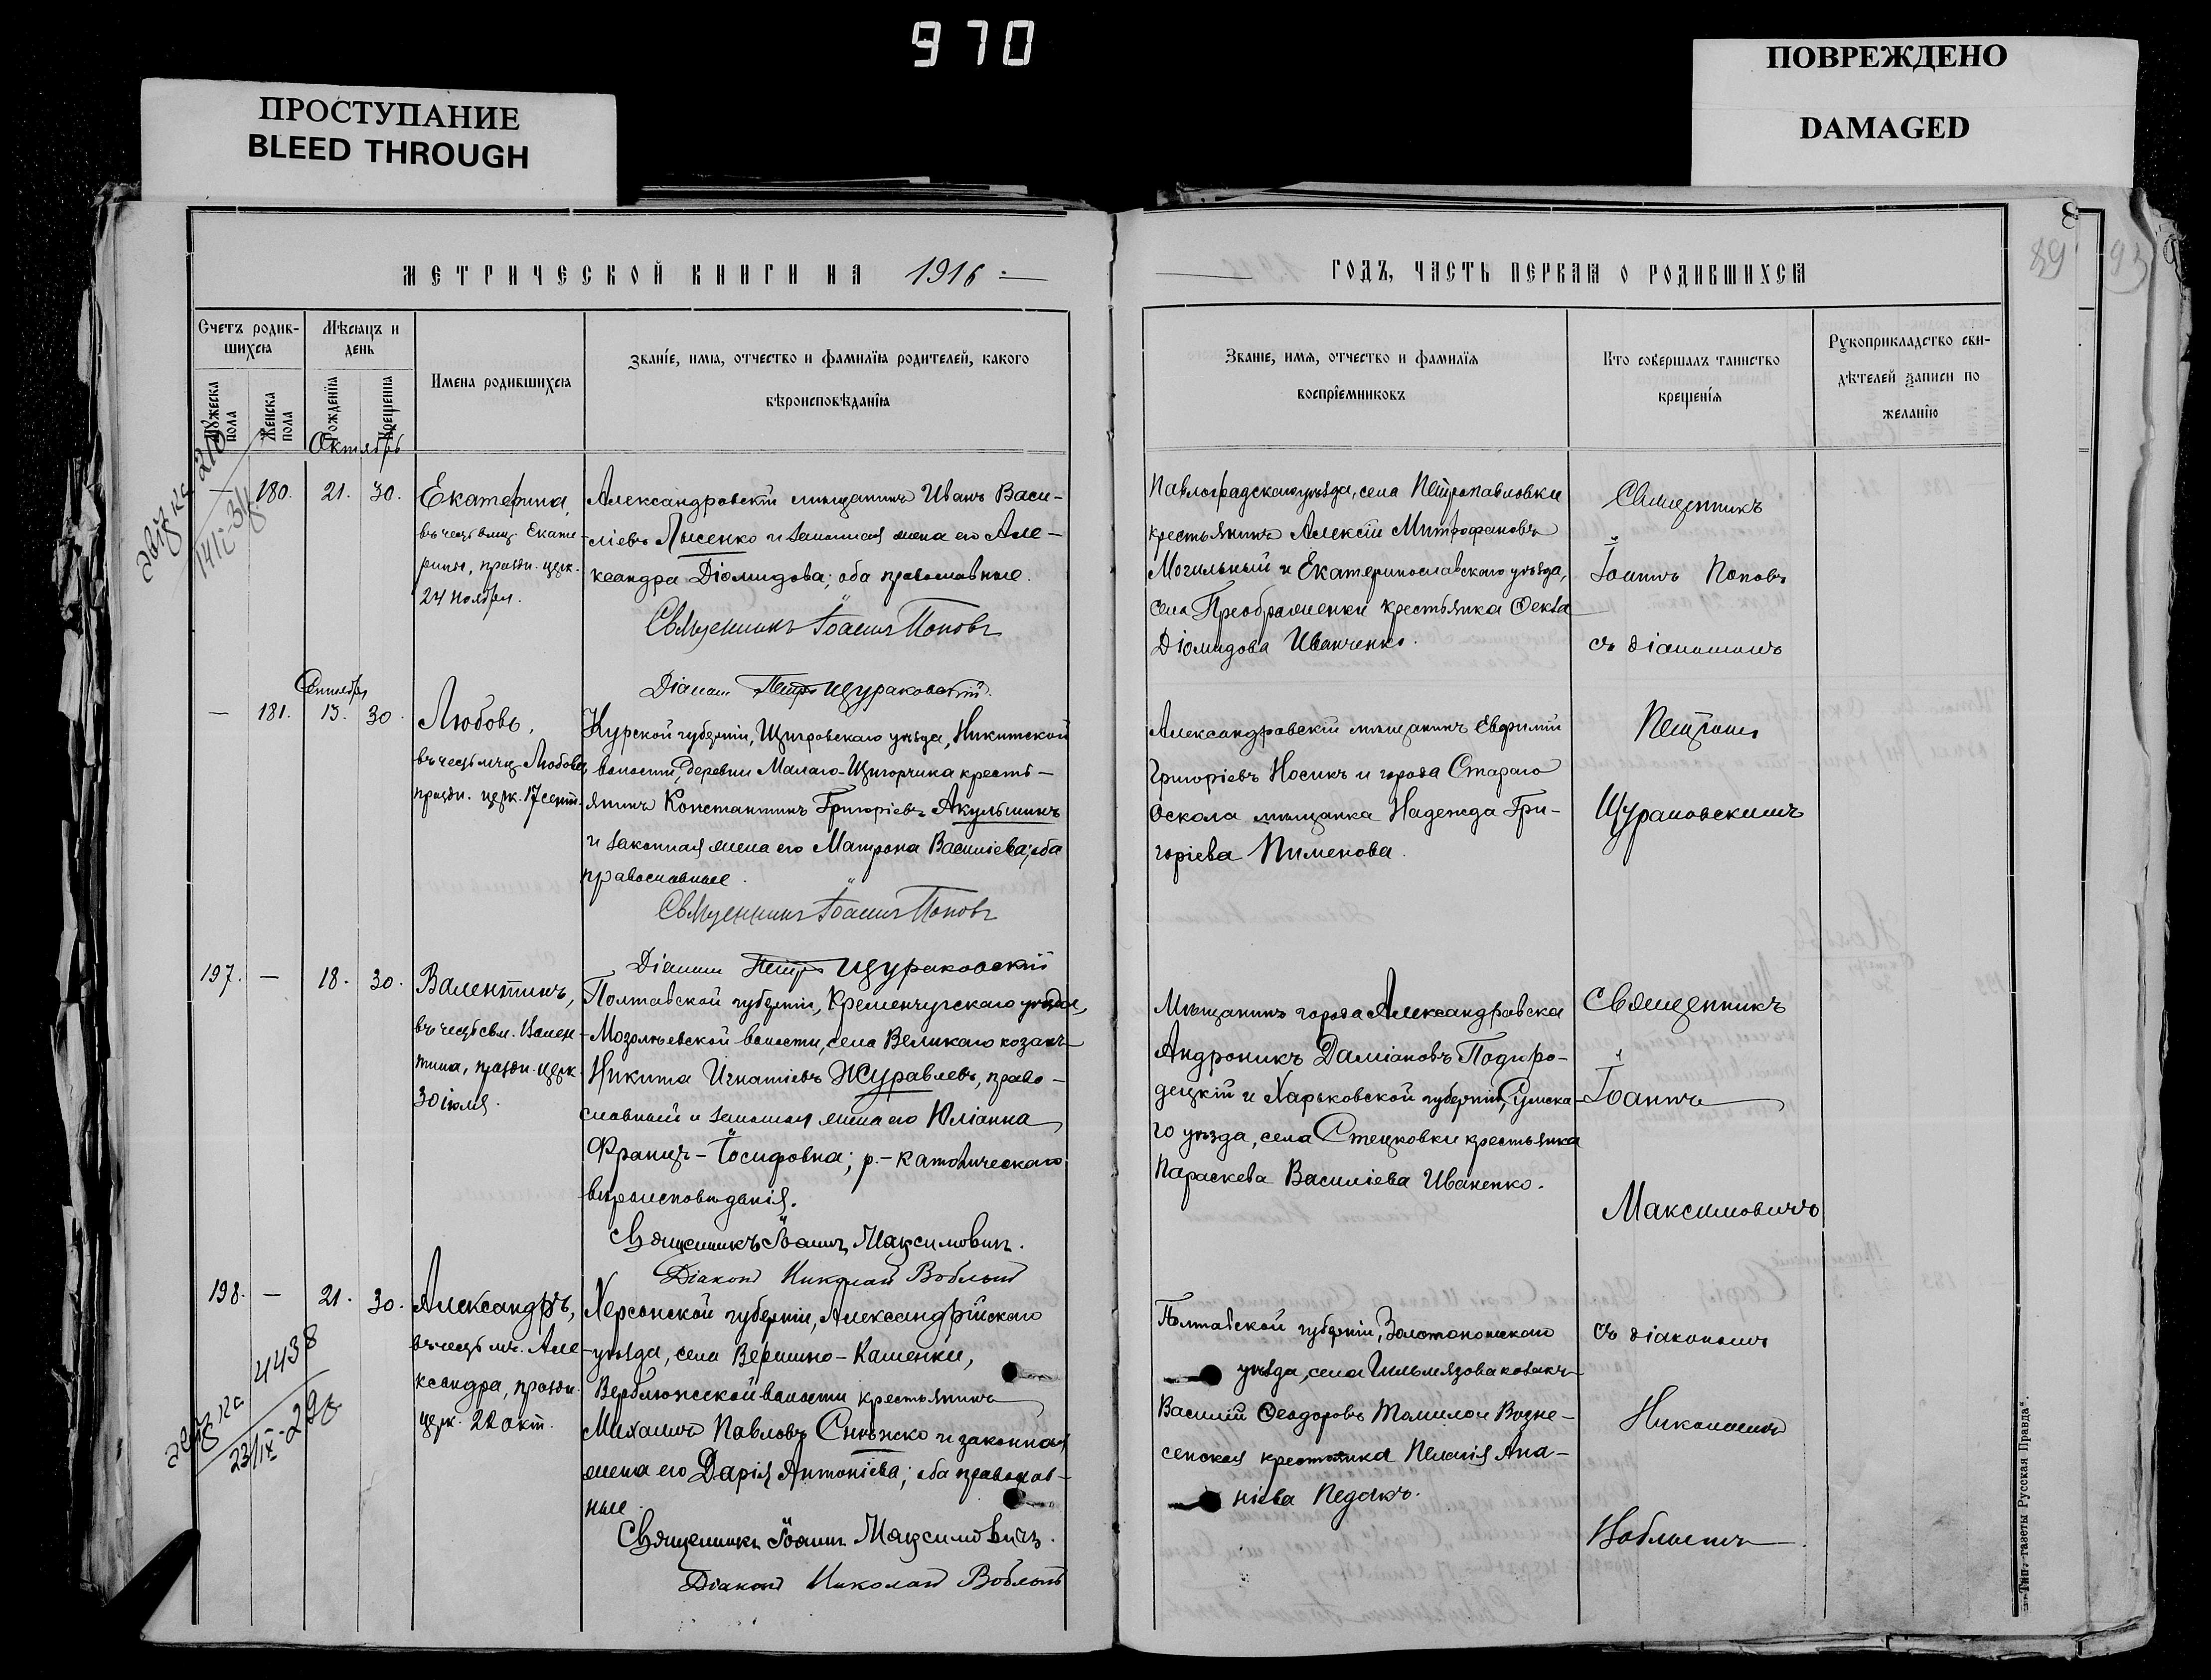 970
ПРОСТУПАНИЕ
BLEED THROUGH
ПОВРЕЖДЕНО
DAMAGED
МЕТРИЧЕСКОЙ КНИГИ НА 1916
Счетъ родив-
шихся
Мужеска пола
Женска пола
Мѣсяцъ и
день
Рожденія
Крещенія
Имена родившихся
Званіе, имя, отчество и фамилія родителей, какого
вѣроисповѣданія
Октябрь
— 180. 21. 30.
Екатерина,
въ честь вмц. Екате-
рины, праздн. церк.
24 ноября.
Александровскій мѣщанинъ Иванъ Васи-
ліевъ Лысенко и законная жена его Але-
ксандра Діомидова; оба православные.
Священникъ Іоаннъ Поповъ
Діаконъ Петръ Щураковскій.
Сентябрь
— 181. 13. 30.
Любовь,
въ честь мчц. Любови,
праздн. церк. 17 сент.
Курской губерніи, Щигровскаго уѣзда, Никитской
волости, деревни Малаго-Щигорчика кресть-
янинъ Константинъ Григоріевъ Акульшинъ
и законная жена его Матрона Василіева; оба
православные.
Священникъ Іоаннъ Поповъ
Діаконъ Петръ Щураковскій
197. — 18. 30.
Валентинъ,
въ честь свм. Вален-
тина, праздн. церк.
30 іюля.
Полтавской губерніи, Кременчугскаго уѣзда,
Мозолѣевской волости, села Великаго козакъ
Никита Игнатіевъ Журавлевъ, право-
славный и законная жена его Юліанна
Францъ-Іосифовна; р.-католическаго
вѣроисповѣданія.
Священникъ Іоаннъ Максимовичъ.
Діаконъ Николай Воблый
198. — 21. 30.
Александръ,
въ честь мч. Але-
ксандра, праздн.
церк. 22 окт.
4438
Херсонской губерніи, Александрійскаго
уѣзда, села Вершино-Каменки,
Верблюжской волости крестьянинъ
Михаилъ Павловъ Снѣжко и законная
жена его Дарія Антоніева; оба православ-
ные.
Священникъ Іоаннъ Максимовичъ.
Діаконъ Николай Воблый
ГОДЪ, ЧАСТЬ ПЕРВАЯ О РОДИВШИХСЯ
89
93
Званіе, имя, отчество и фамилія
воспріемниковъ
Кто совершалъ таинство
крещенія
Рукоприкладство сви-
дѣтелей записи по
желанію
Павлоградскаго уѣзда, села Петропавловки
крестьянинъ Алексій Митрофановъ
Могильный и Екатеринославскаго уѣзда,
села Преображенки крестьянка Ѳекла
Діомидова Иванченко.
Священникъ
Іоаннъ Поповъ
съ діакономъ
Александровскій мѣщанинъ Евфимій
Григоріевъ Носикъ и города Стараго
Оскола мѣщанка Надежда Гри-
горіева Пименова.
Петромъ
Щураковскимъ
Мѣщанинъ города Александровска
Андроникъ Даміановъ Подгоро-
децкій и Харьковской губерніи, Сумска-
го уѣзда, села Стецковки крестьянка
Параскева Василіева Иваненко.
Священникъ
Іоаннъ
Максимовичъ
Полтавской губерніи, Золотоношскаго
уѣзда, села Гильмязова козакъ
Василій Ѳеодоровъ Томилой Возне-
сенская крестьянка Пелагія Ана-
ніева Педакъ.
съ діакономъ
Николаемъ
Воблымъ
Тип. газеты „Русская Правда“.